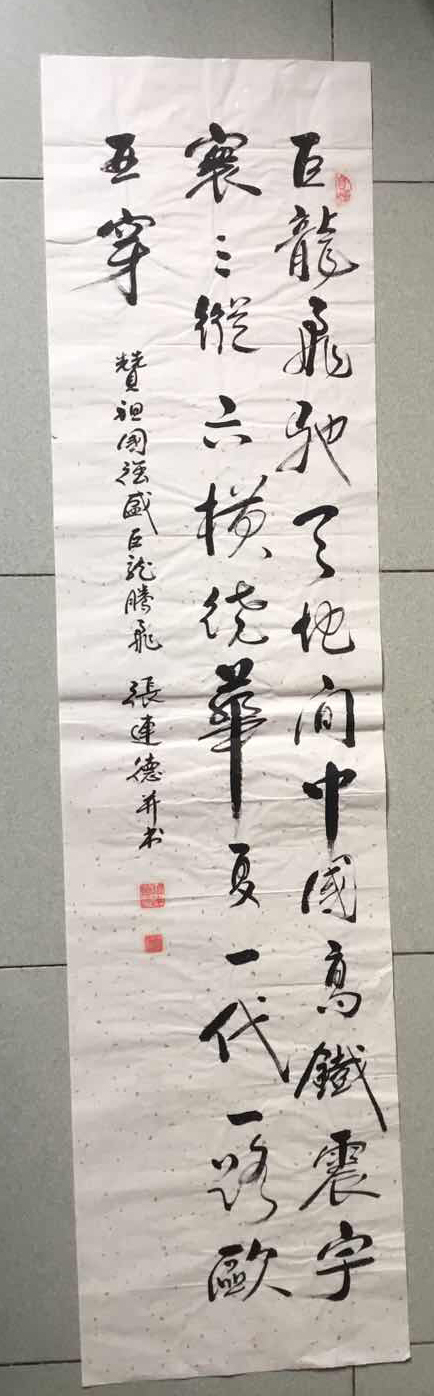 巨龍飛馳天地间中國高鐵震宇
寰三縱六横绕華夏一代一路歐
亜穿
赞祖國强盛巨龙腾飛 張連德并书